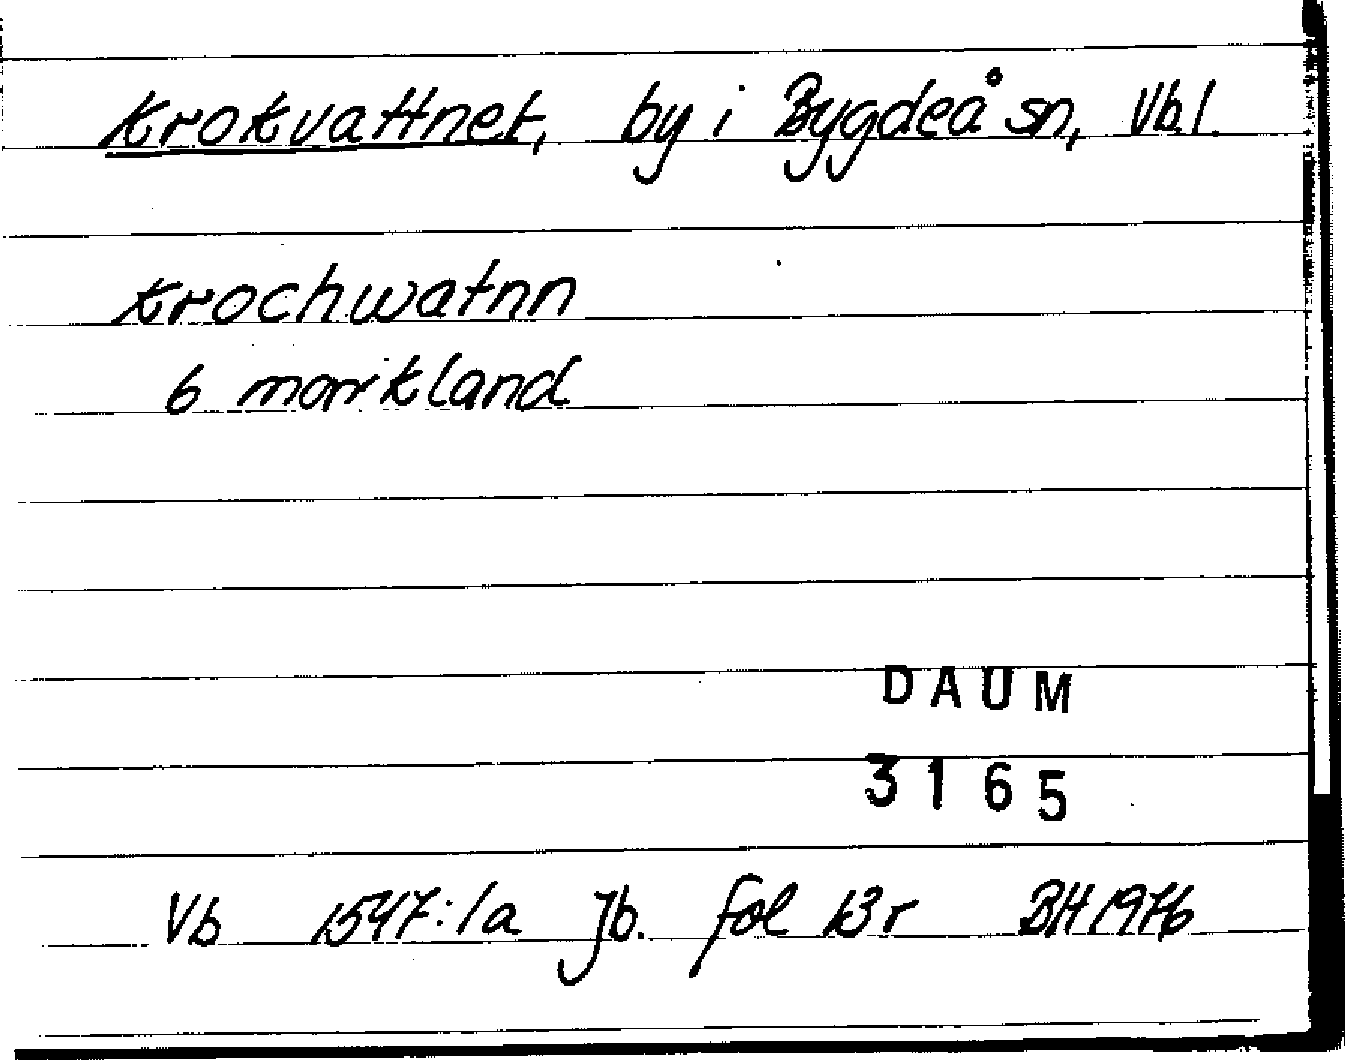 Krokvattnet, by i Bygdeå sn, Vb.l.
Krochwatnn
6 markland
DAUM
3165
Vb 1547:1a Jb. fol 13r BH 1976